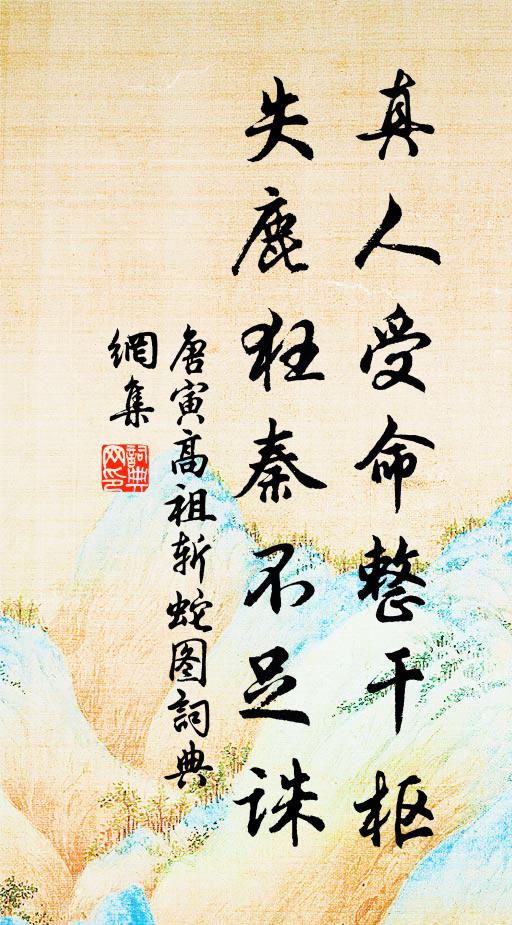 真人受命整干枢
失鹿狂秦不足诛
唐寅高祖斩蛇图詞典
網集
詞典网印